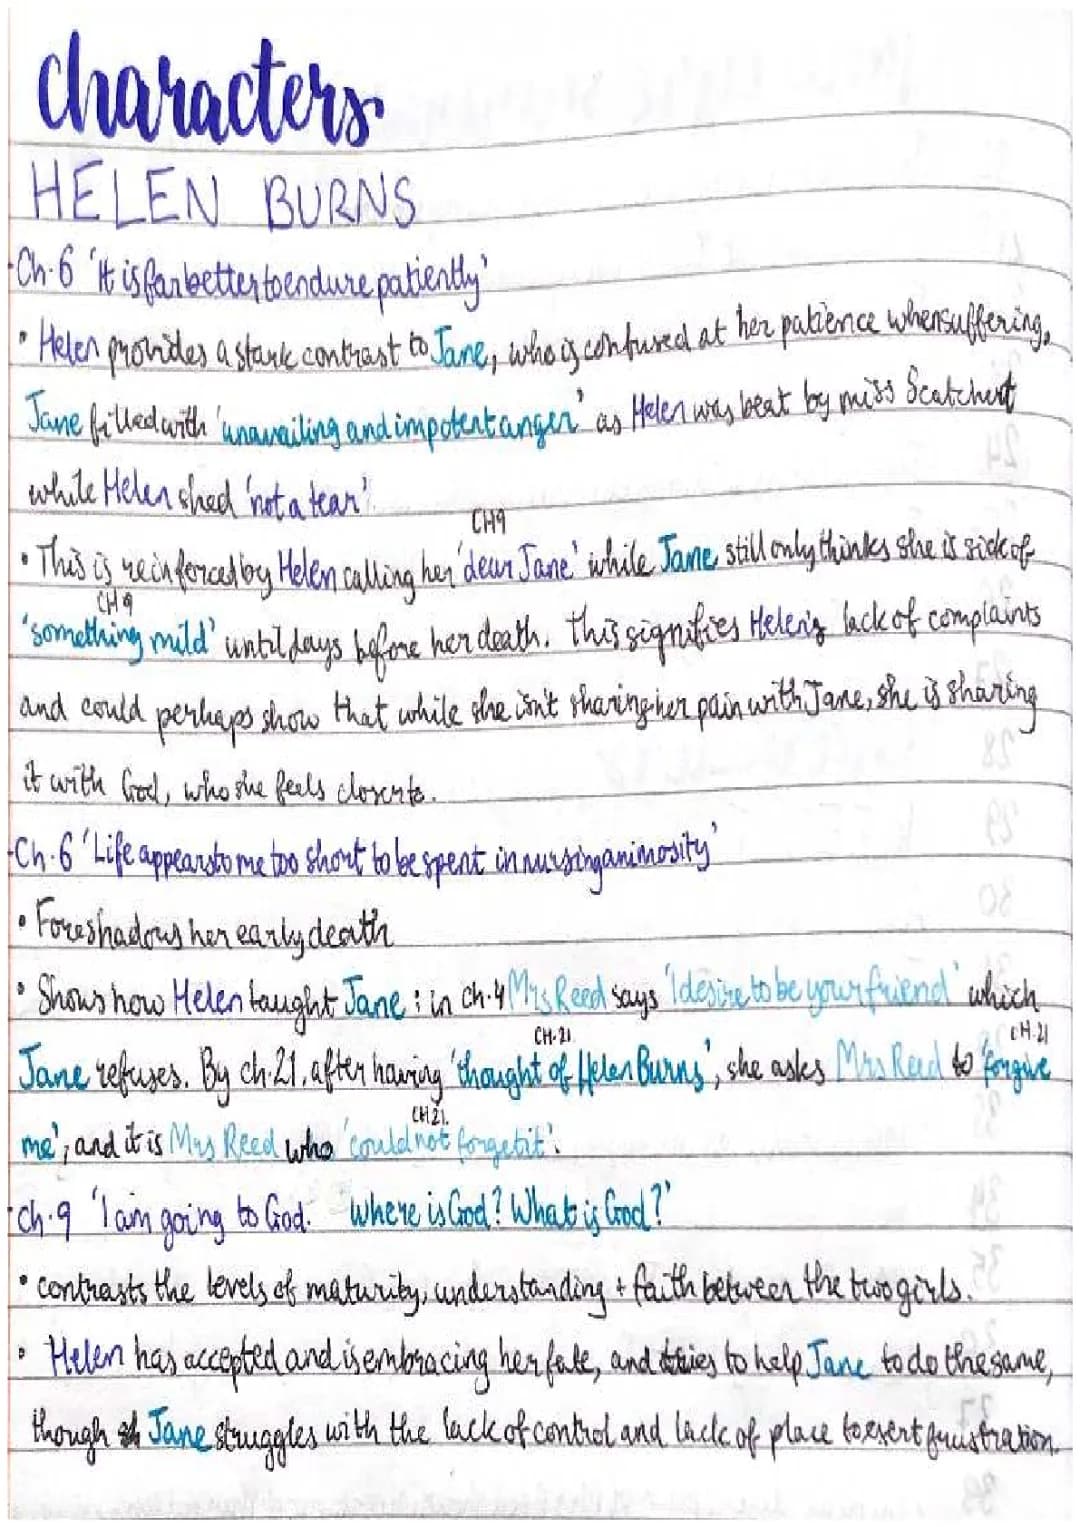 characters
HELEN BURNS
-Ch.6 'It is far better to endure patiently'
• Helen provides a stark contrast to Jane, who is confused at her patience when suffering,
Jane filled with 'unavailing and impotent anger' as Helen was beat by miss Scatchert
while Helen shed 'not a tear'
CH9
• This is reinforced by Helen calling her 'dear Jane' while Jane still only thinks she is sick of
CH9
'something mild' until days before her death. This signifies Helen's lack of complaints
and could perhaps show that while she isn't sharing her pain with Jane, she is sharing
it with God, who she feels closer to.
-Ch.6 'Life appears to me too short to be spent in nursing animosity'
• Foreshadows her early death
• Shows how Helen taught Jane: in ch.4 Mrs Reed says 'I desire to be your friend' which
CH.21 CH.21
Jane refuses. By ch.21, after having 'thought of Helen Burns', she asks Mrs Reed to 'forgive
CH21.
me', and it is Mrs Reed who 'could not forget it'.
-Ch.9 'I am going to God. Where is God? What is God?'
• contrasts the levels of maturity, understanding + faith between the two girls.
• Helen has accepted and is embracing her fate, and tries to help Jane to do the same,
though Jane struggles with the lack of control and lack of place to exert frustration.